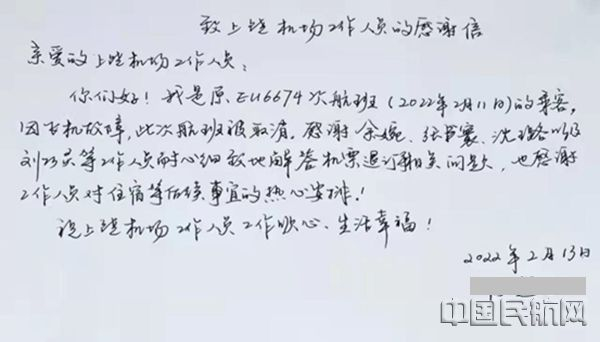 致上饶机场工作人员的感谢信
亲爱的上饶机场工作人员:
你们好!我是原EU6674次航班(2022年2月11日)的乘客,
因飞机故障,此次航班被取消,感谢余婉、张 寰、沈 以及
刘 等工作人员耐心细致地解答机票退订相关问题,也感谢
工作人员对住宿等后续事宜的热心安排!
祝上饶机场工作人员工作顺心、生活幸福!
2022年2月13日
中国民航网